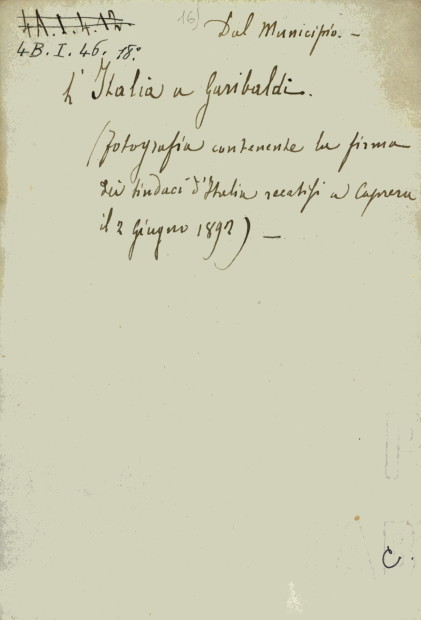 4A.I.4.12
16)
Dal Municipio. —
4B.I.46. 18º
L'Italia a Garibaldi.
(fotografia contenente la firma
dei sindaci d'Italia recatisi a Caprera
il 2 Giugno 1892) —
C.